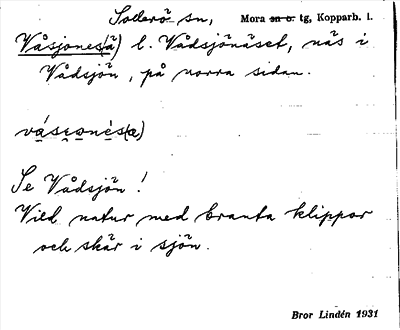 Sollerö sn, Mora sn o. tg, Kopparb. l.
Våsjones(ä) l. Vådsjönäset, näs i
Vådsjön, på norra sidan.
Se Vådsjön!
Vild natur med branta klippor
och skär i sjön.
Bror Lindén 1931